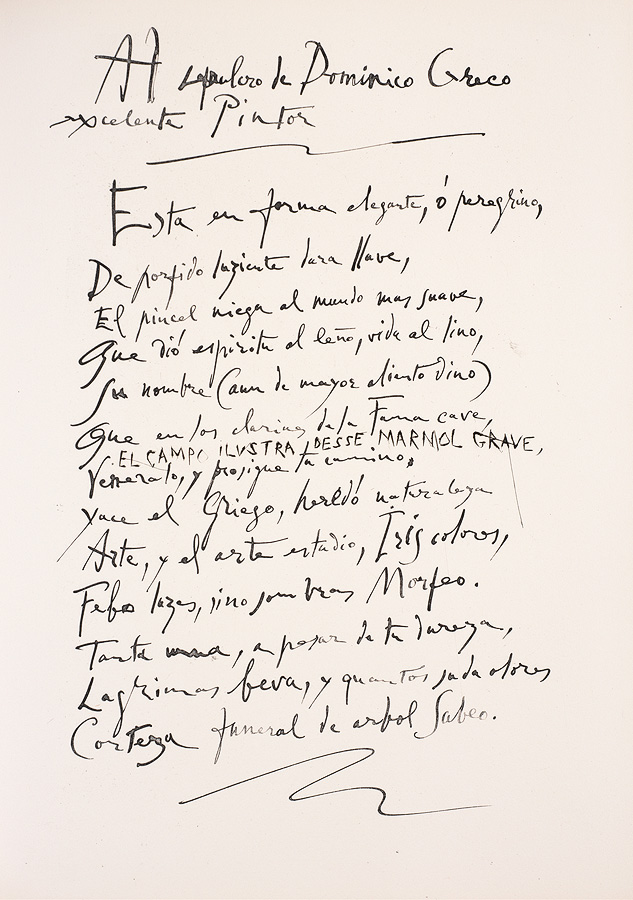 Al sepulcro de Dominico Greco
excelente Pintor
Esta en forma elegante, ó peregrino,
De porfido luziente dura llave,
El pincel niega al mundo mas suave,
Que dió espiritu al leño, vida al lino,
Su nombre (aun de mayor aliento dino)
Que en los clarines de la Fama cave,
EL CAMPO ILUSTRA DESSE MARMOL GRAVE,
Venerato, y prosigue tu camino.
Yace el Griego, heredó naturaleza
Arte, y el arte estudio, Iris colores,
Febo luzes, sino sombras Morfeo.
Tanta urna, a pesar de tu dureza,
Lagrimas beva, y quantos suda olores
Corteza funeral de arbol Sabeo.